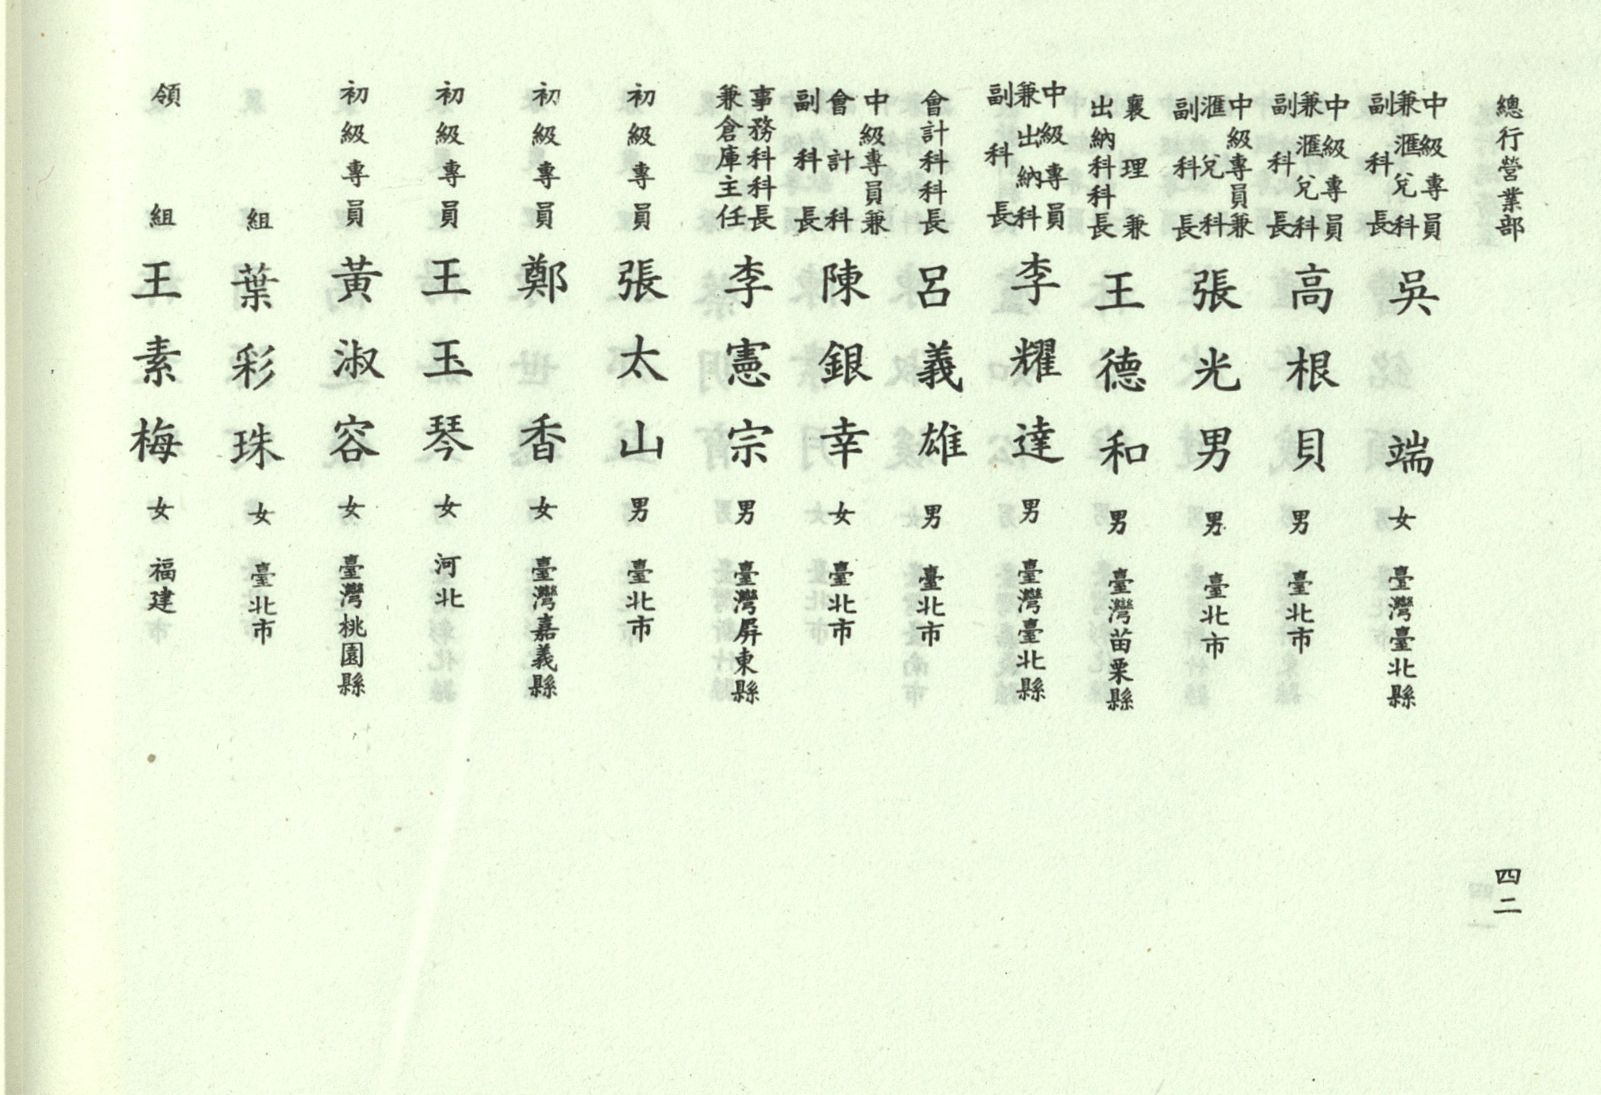 總行營業部
四二
中級專員兼滙兌科副科長 吳端 女 臺灣臺北縣
中級專員兼滙兌科副科長 高根貝 男 臺北市
中級專員兼滙兌科副科長 張光男 男 臺北市
襄理兼出納科科長 王德和 男 臺灣苗栗縣
中級專員兼出納科副科長 李耀達 男 臺灣臺北縣
會計科科長 呂義雄 男 臺北市
中級專員兼會計科副科長 陳銀幸 女 臺北市
事務科科長兼倉庫主任 李憲宗 男 臺灣屏東縣
初級專員 張太山 男 臺北市
初級專員 鄭香 女 臺灣嘉義縣
初級專員 王玉琴 女 河北
初級專員 黃淑容 女 臺灣桃園縣
組 葉彩珠 女 臺北市
領組 王素梅 女 福建